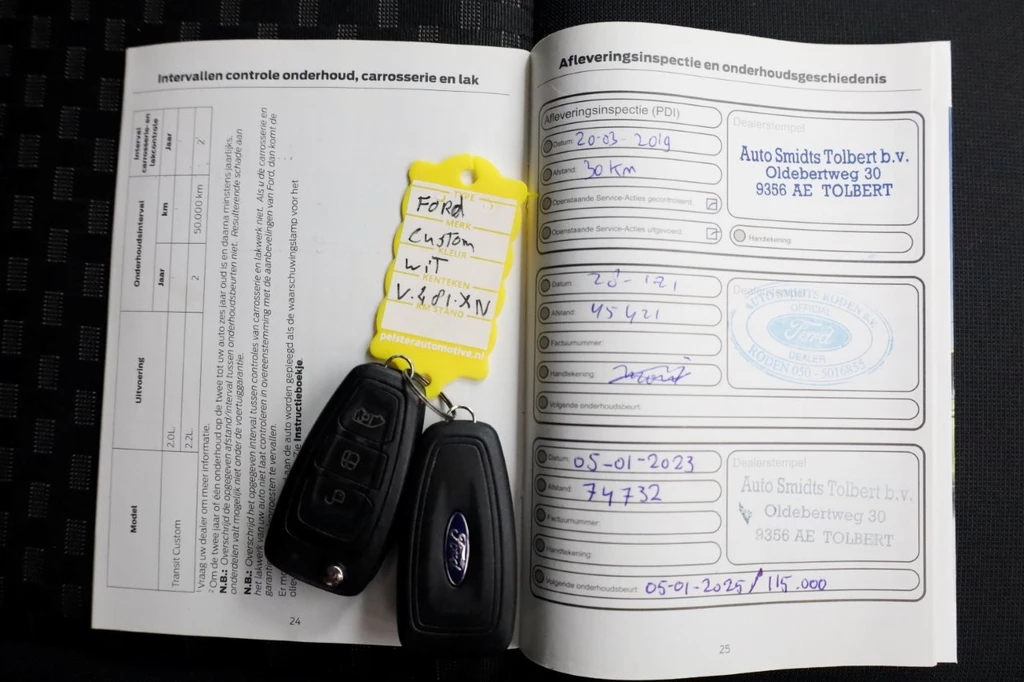 Intervallen controle onderhoud, carrosserie en lak
Model
Uitvoering
Onderhoudsinterval
Interval carrosserie- en lakcontrole
Jaar
km
Jaar
Transit Custom
2.0L
2.2L
2
50.000 km
2¹
Vraag uw dealer om meer informatie.
² Om de twee jaar of één onderhoud op de twee tot uw auto zes jaar oud is en daarna minstens jaarlijks.
N.B.: Overschrijd de opgegeven afstand/interval tussen onderhoudsbeurten niet. Resulterende schade aan
onderdelen valt mogelijk niet onder de voertuiggarantie.
N.B.: Overschrijd het opgegeven interval tussen controles van carrosserie en lakwerk niet. Als u de carrosserie en
het lakwerk van uw auto niet laat controleren in overeenstemming met de aanbevelingen van Ford, dan komt de
te vervallen.
aan de auto worden gepleegd als de waarschuwingslamp voor het
Instructieboekje.
24
TYPE
Ford
MERK
Custom
KLEUR
wit
KENTEKEN
V.481.XN
KM STAND
pelsterautomotive.nl
Ford
Afleveringsinspectie en onderhoudsgeschiedenis
Afleveringsinspectie (PDI)
Datum: 20-03-2019
Afstand: 30 Km
Openstaande Service-Acties gecontroleerd:
Openstaande Service-Acties uitgevoerd:
Dealerstempel
Auto Smidts Tolbert b.v.
Oldebertweg 30
9356 AE TOLBERT
Handtekening:
Datum:
Afstand: 45421
Factuurnummer:
Handtekening:
Volgende onderhoudsbeurt:
AUTO SMIDTS RODEN B.V.
OFFICIAL
Ford
DEALER
RODEN 050-5016855
Datum: 05-01-2023
Afstand: 74732
Factuurnummer:
Handtekening:
Volgende onderhoudsbeurt: 05-01-2025 / 115.000
Dealerstempel
Auto Smidts Tolbert b.v.
Oldebertweg 30
9356 AE TOLBERT
25